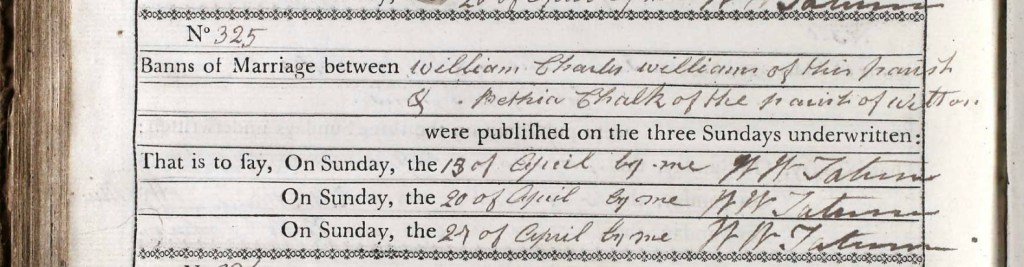 20 of April by me W W Tatum
No 325
Banns of Marriage between William Charles Williams of this parish
& Bethia Chalk of the parish of Wilton
were publiſhed on the three Sundays underwritten:
That is to ſay, On Sunday, the 13 of April by me W W Tatum
On Sunday, the 20 of April by me W W Tatum
On Sunday, the 27 of April by me W W Tatum